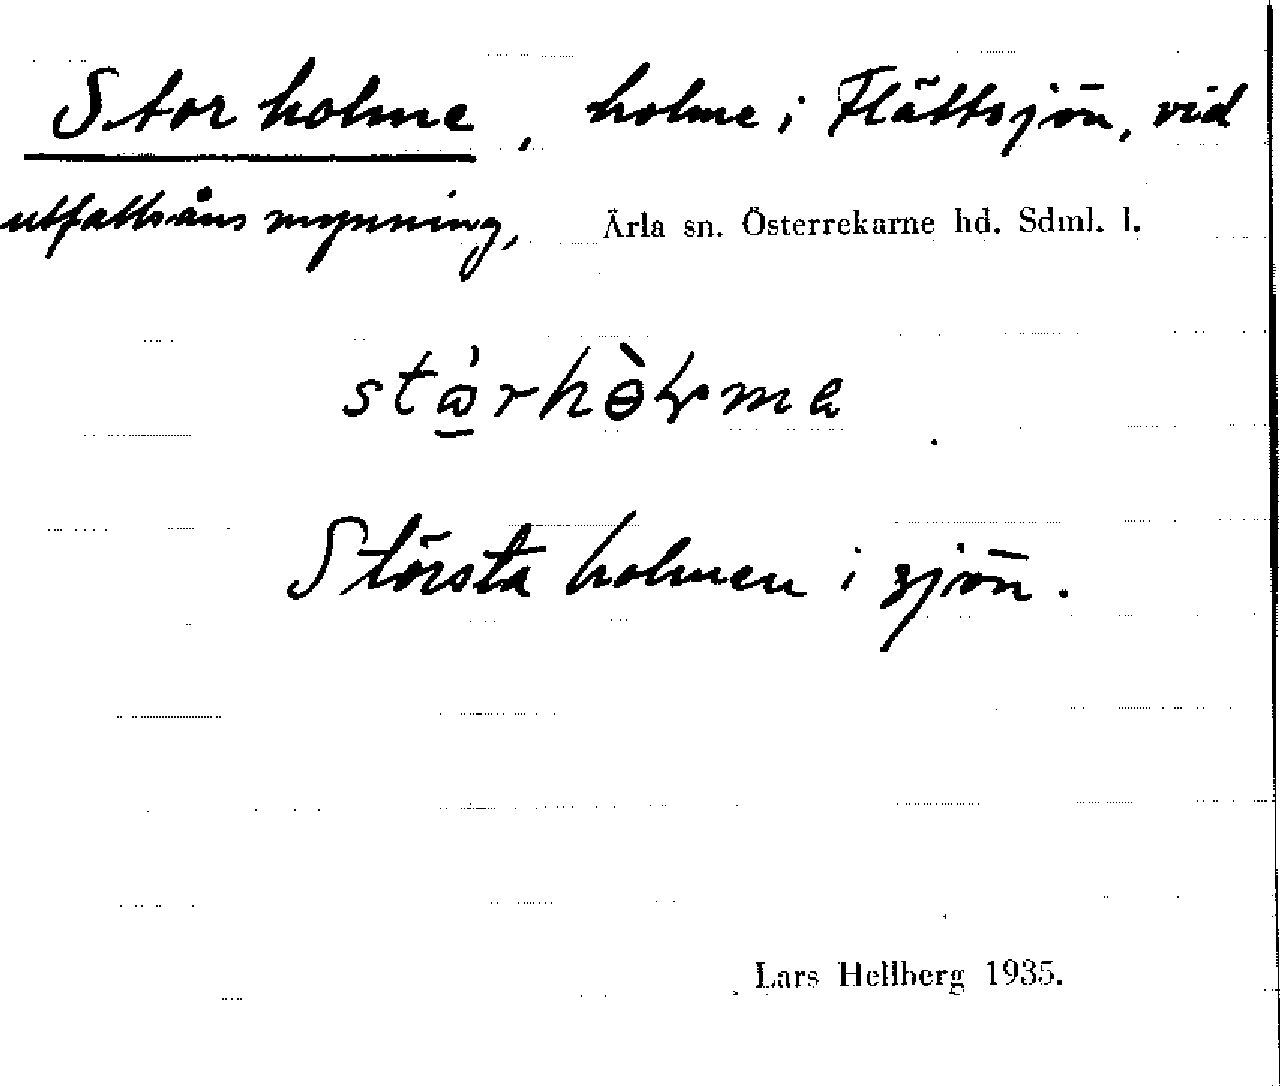 Storholme, holme i Flättsjön, vid
utfallsåns mynning, Ärla sn. Österrekarne hd. Sdml. l.
Största holmen i sjön.
Lars Hellberg 1935.